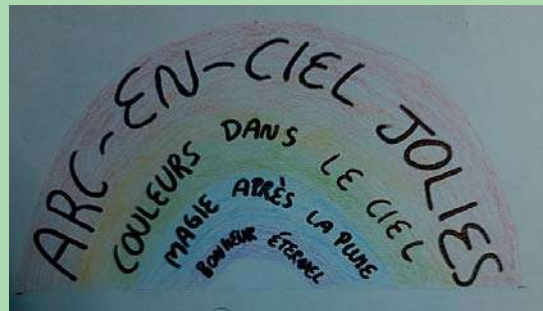 ARC-EN-CIEL JOLIES
COULEURS DANS LE CIEL
MAGIE APRÈS LA PLUIE
BONHEUR ÉTERNEL